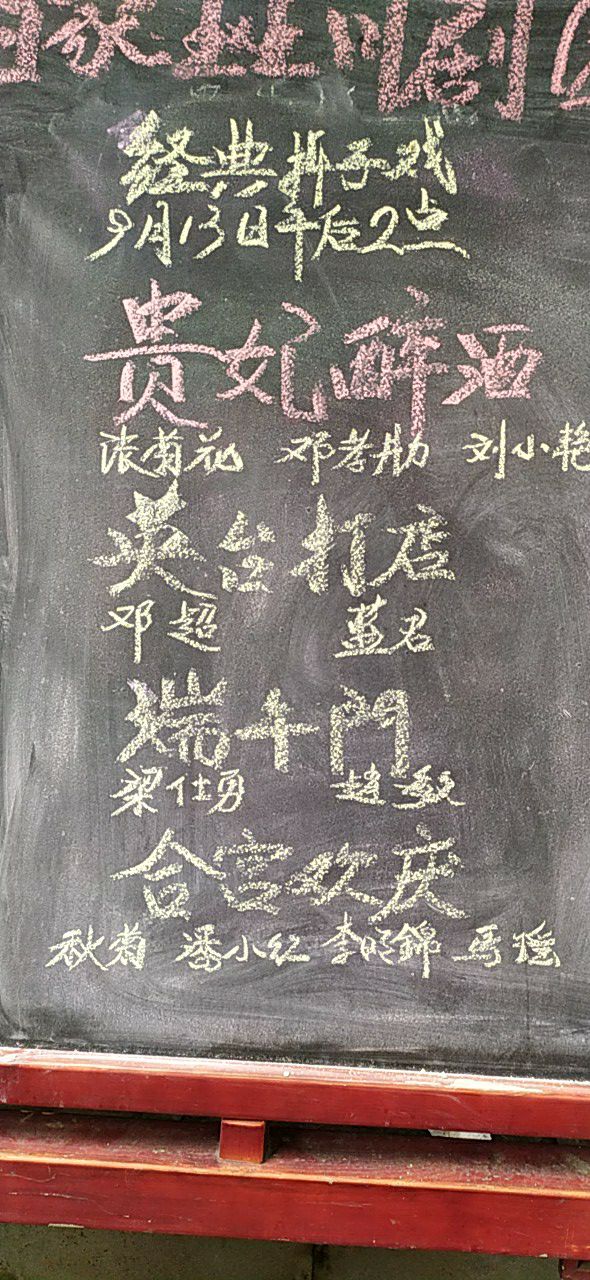 家班川剧
经典折子戏
9月13日午后2点
贵妃醉酒
张菊花 邓孝 刘小艳
英台打店
邓超 君
端午門
梁仕勇 趙
合宫欢庆
秋菊 潘小红 李明錦 馬瑶